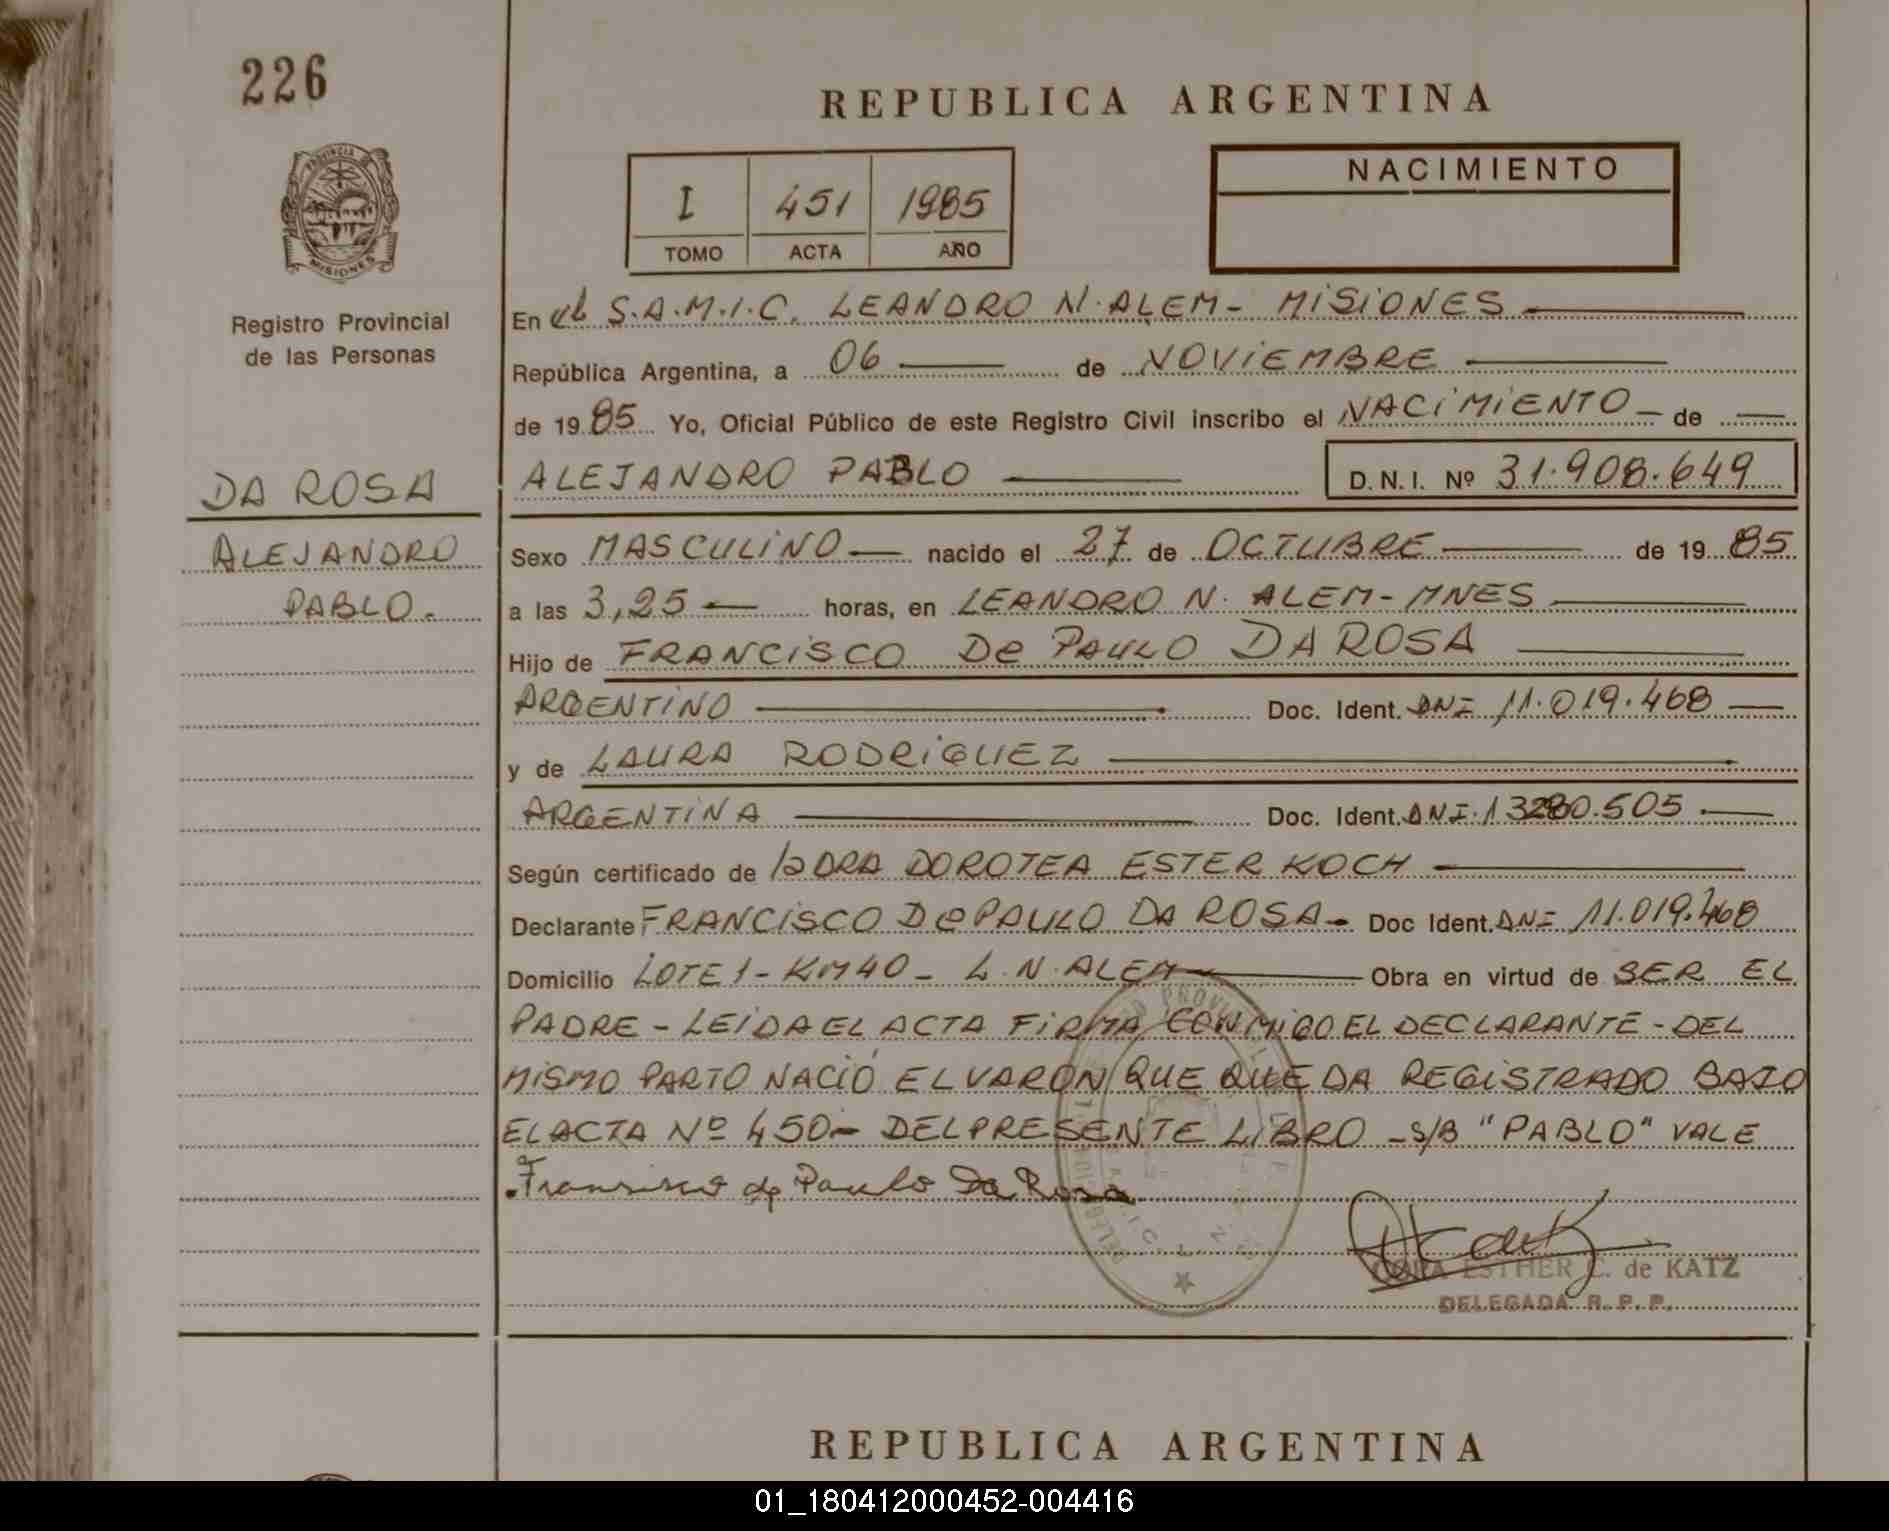 226
REPUBLICA ARGENTINA
PROVINCIA DE
MISIONES
NACIMIENTO
I 451 1985
TOMO ACTA AÑO
Registro Provincial
de las Personas
En el S.A.M.I.C. LEANDRO N. ALEM - MISIONES
República Argentina, a 06 de NOVIEMBRE
de 1985 Yo, Oficial Público de este Registro Civil inscribo el NACIMIENTO - de
ALEJANDRO PABLO D.N.I. Nº 31.908.649
DA ROSA
ALEJANDRO
PABLO.
Sexo MASCULINO nacido el 27 de OCTUBRE de 1985
a las 3,25 horas, en LEANDRO N. ALEM - MNES
Hijo de FRANCISCO De PAULO DA ROSA
ARGENTINO Doc. Ident. DNI 11.019.468
y de LAURA RODRIGUEZ
ARGENTINA Doc. Ident. DNI. 13280.505
Según certificado de la DRA DOROTEA ESTER KOCH
Declarante FRANCISCO De PAULO DA ROSA - Doc Ident. DNI 11.019.468
Domicilio LOTE 1 - KM 40 - L.N. ALEM Obra en virtud de SER EL
PADRE - LEIDA EL ACTA FIRMA CONMIGO EL DECLARANTE - DEL
MISMO PARTO NACIÓ EL VARON QUE QUEDA REGISTRADO BAJO
EL ACTA Nº 450 - DEL PRESENTE LIBRO - S/B "PABLO" VALE
Francisco de Paulo Da Rosa
ESTHER C. de KATZ
DELEGADA R. P. P.
REPUBLICA ARGENTINA
01_180412000452-004416